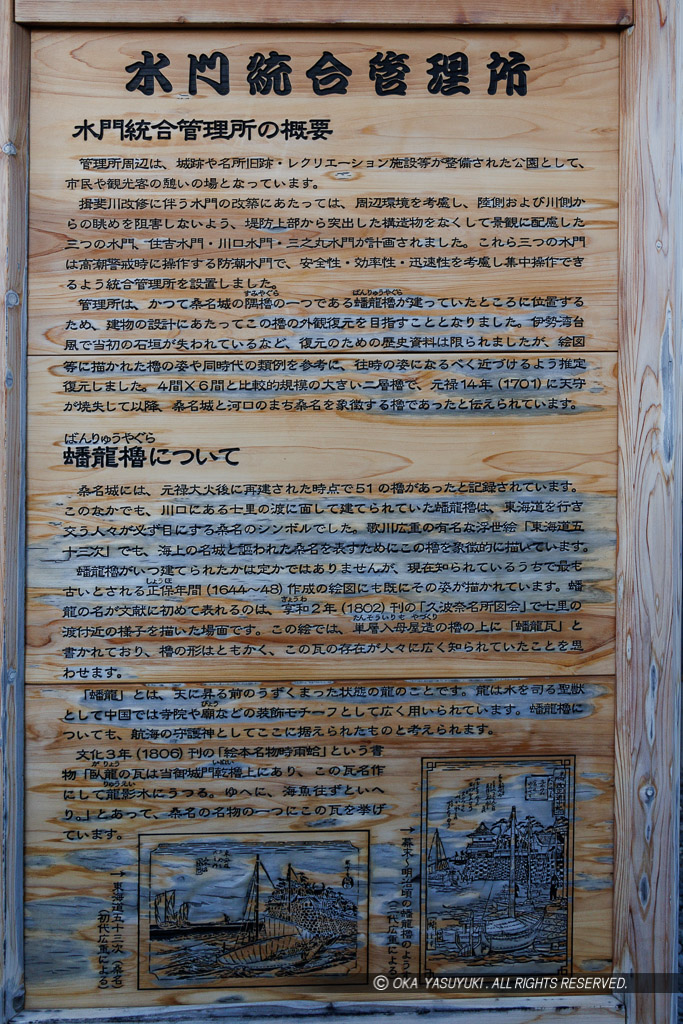 水門統合管理所
水門統合管理所の概要
管理所周辺は、城跡や名所旧跡・レクリエーション施設等が整備された公園として、
市民や観光客の憩いの場となっています。
揖斐川改修に伴う水門の改築にあたっては、周辺環境を考慮し、陸側および川側か
らの眺めを阻害しないよう、堤防上部から突出した構造物をなくして景観に配慮した
三つの水門、住吉水門・川口水門・三之丸水門が計画されました。これら三つの水門
は高潮警戒時に操作する防潮水門で、安全性・効率性・迅速性を考慮し集中操作でき
るよう統合管理所を設置しました。
すみやぐら ばんりゅうやぐら
管理所は、かつて桑名城の隅櫓の一つである蟠龍櫓が建っていたところに位置する
ため、建物の設計にあたってこの櫓の外観復元を目指すこととなりました。伊勢湾台
風で当初の石垣が失われているなど、復元のための歴史資料は限られましたが、絵図
等に描かれた櫓の姿や同時代の類例を参考に、往時の姿になるべく近づけるよう推定
復元しました。4間×6間と比較的規模の大きい二層櫓で、元禄14年(1701)に天守
が焼失して以降、桑名城と河口のまち桑名を象徴する櫓であったと伝えられています。
ばんりゅうやぐら
蟠龍櫓について
桑名城には、元禄大火後に再建された時点で51の櫓があったと記録されています。
このなかでも、川口にある七里の渡に面して建てられていた蟠龍櫓は、東海道を行き
交う人々が必ず目にする桑名のシンボルでした。歌川広重の有名な浮世絵「東海道五
十三次」でも、海上の名城と謳われた桑名を表すためにこの櫓を象徴的に描いています。
蟠龍櫓がいつ建てられたかは定かではありませんが、現在知られているうちで最も
しょうほ
古いとされる正保年間(1644〜48)作成の絵図にも既にその姿が描かれています。蟠
きょうわ
龍の名が文献に初めて表れるのは、享和2年(1802)刊の「久波奈名所図会」で七里の
たんそういりもやづくり
渡付近の様子を描いた場面です。この絵では、単層入母屋造の櫓の上に「蟠龍瓦」と
書かれており、櫓の形はともかく、この瓦の存在が人々に広く知られていたことを思
わせます。
「蟠龍」とは、天に昇る前のうずくまった状態の龍のことです。龍は水を司る聖獣
びょう
として中国では寺院や廟などの装飾モチーフとして広く用いられています。蟠龍櫓に
ついても、航海の守護神としてここに据えられたものと考えられます。
文化3年(1806)刊の「絵本名物時雨蛤」という書
がりょう いぬい
物「臥龍の瓦は当御城門乾櫓上にあり、この瓦名作
りゅうえい
にして龍影水にうつる。ゆへに、海魚住ずといへ
り。」とあって、桑名の名物の一つにこの瓦を挙げ
ています。
→東海道五十三次(桑名)
(初代広重による)
→幕末〜明治頃の蟠龍櫓のようす
(二代広重による)
© OKA YASUYUKI. ALL RIGHTS RESERVED.